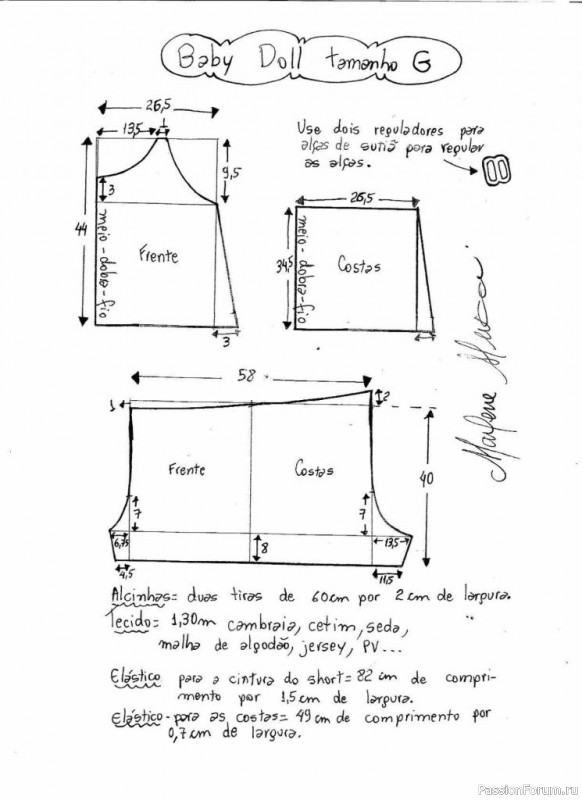 Baby Doll tamanho G
26,5
13,5
1
3
9,5
44
meio-dobra-fio
Frente
3
Use dois reguladores para
alças de sutiã para regular
as alças.
26,5
34,5
meio-dobra-fio
Costas
Marlene Mukai
58
1
2
Frente
Costas
40
7
7
6,75
8
13,5
4,5
11,5
Alcinhas= duas tiras de 60cm por 2cm de largura.
Tecido= 1,30m cambraia, cetim, seda,
malha de algodão, jersey, PV...
Elástico para a cintura do short=82 cm de compri-
mento por 1,5cm de largura.
Elástico-para as costas= 49cm de comprimento por
0,7cm de largura.
PassionForum.ru